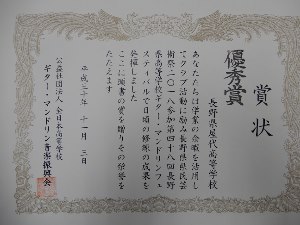 賞状
優秀賞
長野県屋代高等学校
あなたたちは授業の余暇を活用し
てクラブ活動に励み長野県県民芸
術祭二〇一八参加第四十八回長野
県高等学校ギター・マンドリンフェ
スティバルで日頃の修練の成果を
発揮しました
ここに頭書の賞を贈りその栄誉を
たたえます
平成三十年 十一月 三日
公益社団法人 全日本高等学校
ギター・マンドリン音楽振興会